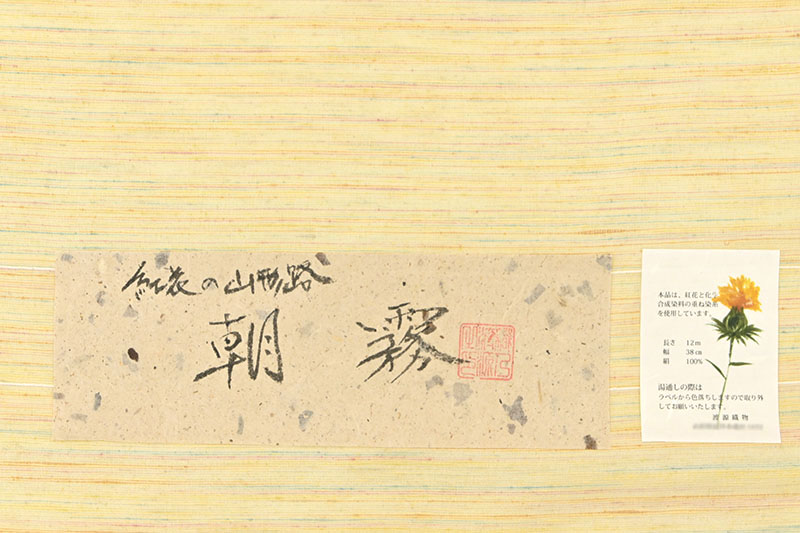 紅花の山形路
朝霧
本品は、紅花と化
合成染料の重ね染糸
を使用しています。
長さ 12m
幅 38cm
絹 100%
湯通しの際は
ラベルから色落ちしますので取り外
してお願いいたします。
渡源織物